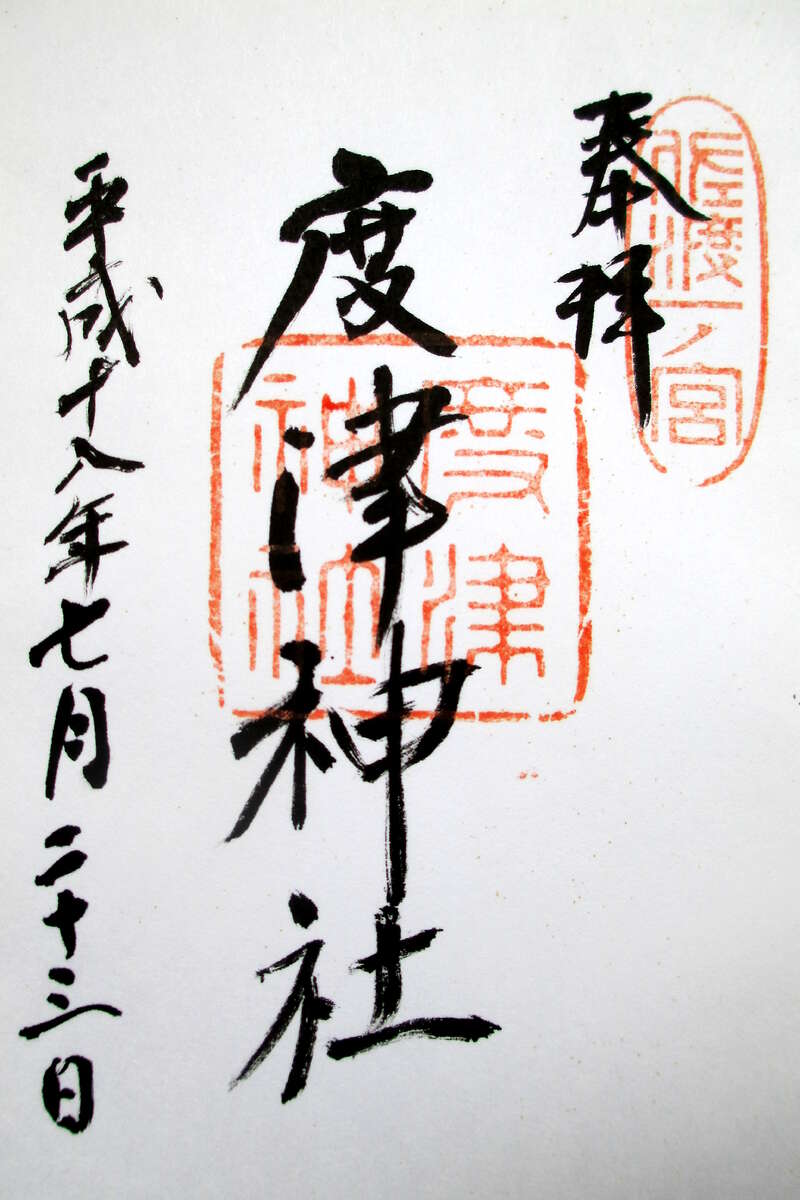 佐渡一ノ宮
奉拝
度津神社
度津
神社
平成十八年七月二十三日